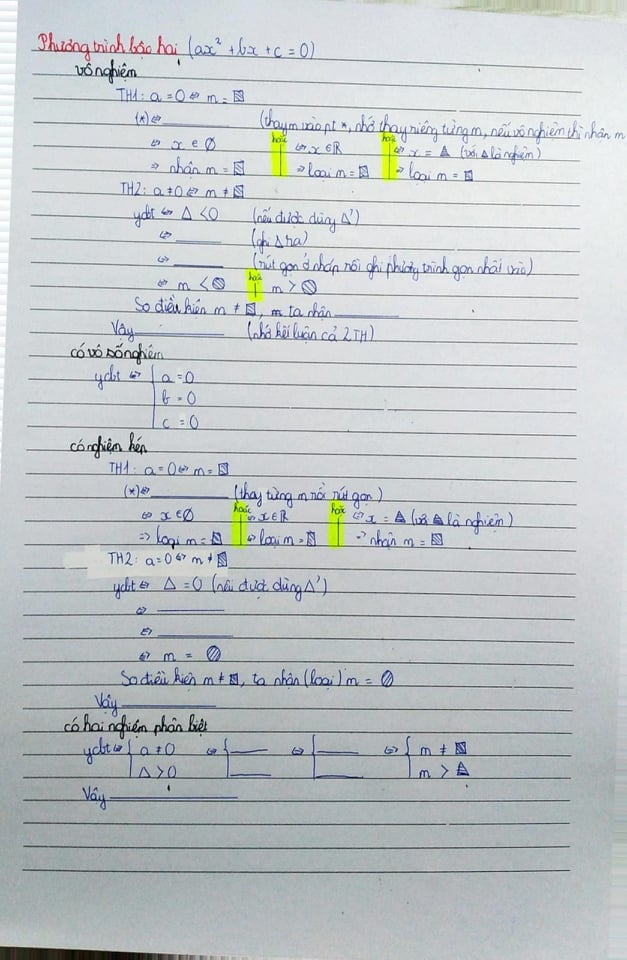 Phương trình bậc hai (ax² + bx + c = 0)
vô nghiệm
TH1: a = 0 ⇔ m = ▧
(*) ⇔ ______ (thay m vào pt *, nhớ thay riêng từng m, nếu vô nghiệm thì nhận m
⇔ x ∈ ∅ hoặc ⇔ x ∈ ℝ hoặc ⇔ x = △ (với △ là nghiệm)
⇒ nhận m = ▧ ⇒ loại m = ▧ ⇒ loại m = ▧
TH2: a ≠ 0 ⇔ m ≠ ▧
ycbt ⇔ Δ < 0 (nếu được dùng Δ')
⇔ ______ (ghi Δ ra)
⇔ ______ (rút gọn ở nháp rồi ghi phương trình gọn nhất vào)
⇔ m < ⊘ hoặc m > ⊘
So điều kiện m ≠ ▧, m ta nhận ______
Vậy ______ (nhớ kết luận cả 2 TH)
có vô số nghiệm
ycbt ⇔ { a = 0
b = 0
c = 0
có nghiệm kép
TH1: a = 0 ⇔ m = ▧
(*) ⇔ ______ (thay từng m rồi rút gọn)
⇔ x ∈ ∅ hoặc ⇔ x ∈ ℝ hoặc ⇔ x = △ (với △ là nghiệm)
⇒ loại m = ▧ ⇔ loại m = ▧ ⇒ nhận m = ▧
TH2: a = 0 ⇔ m ≠ ▧
ycbt ⇔ Δ = 0 (nếu được dùng Δ')
⇔ ______
⇔ ______
⇔ m = ⊘
So điều kiện m ≠ ▧, ta nhận (loại) m = ⊘
Vậy ______
có hai nghiệm phân biệt
ycbt ⇔ { a ≠ 0 ⇔ { ____ ⇔ { ____ ⇔ { m ≠ ▧
Δ > 0 ____ ____ m > △
Vậy ______